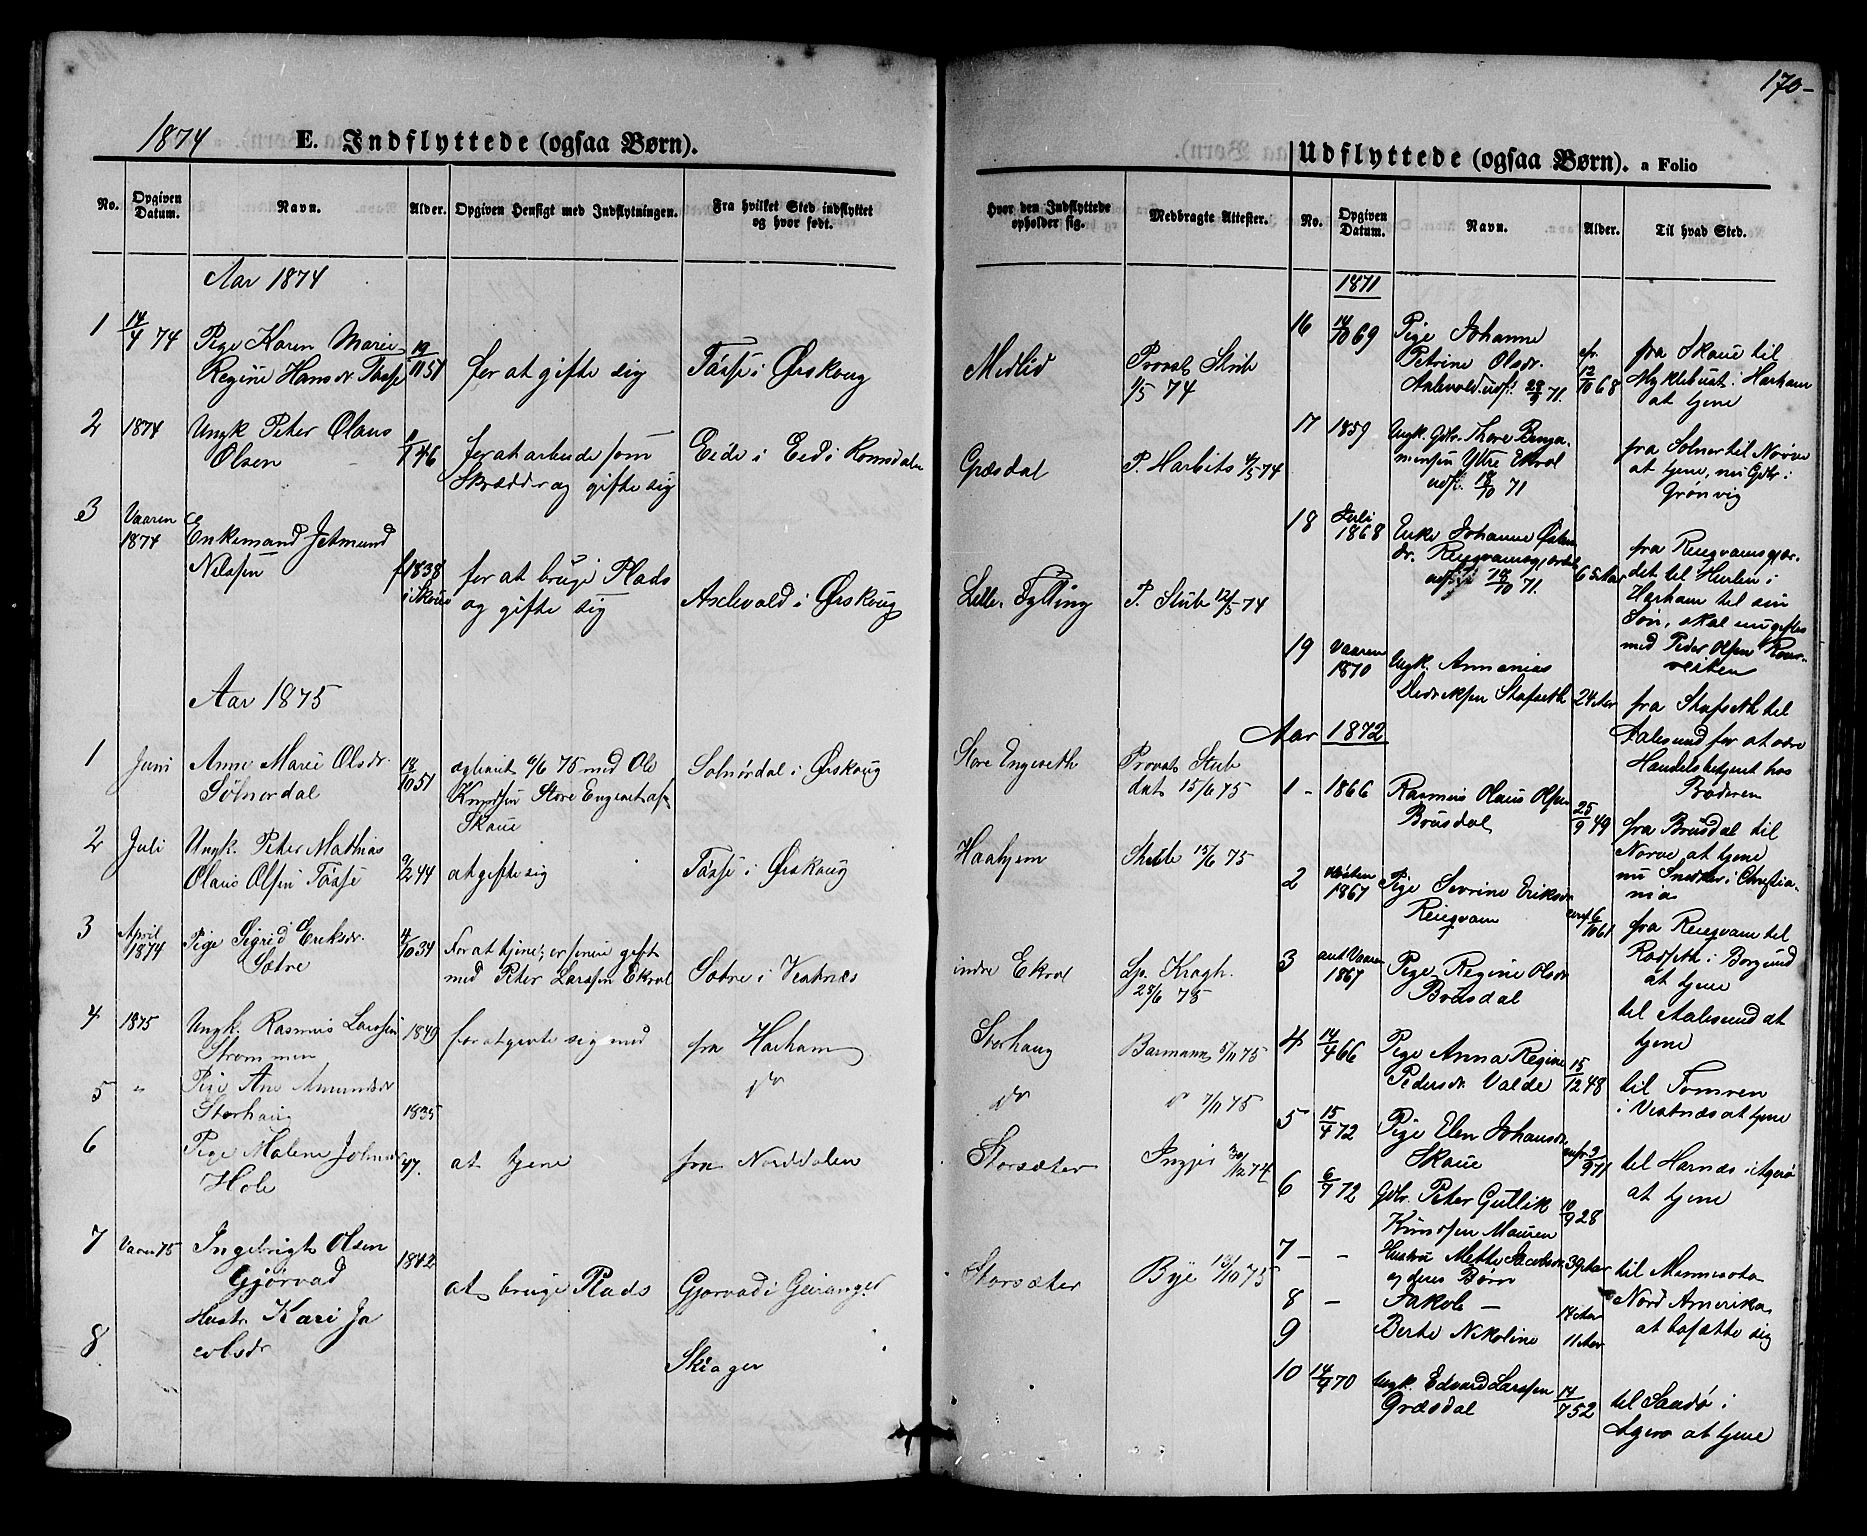 170-
1874 E. Indflyttede (ogsaa Børn).
No. Opgiven Datum. Navn. Alder. Opgiven Hensigt med Indflytningen. Fra hvilket Sted indflyttet og hvor født.
Hvor den Indflyttede opholder sig. Medbragte Attester.
Aar 1874
1 14/4 74 Pige Karen Marie 19/11 51 for at gifte sig Tøsse i Ørskoug Medlid Provst Stub
Regine Hansdr Tøsse 1/5 74
2 1874 Ungk Peter Olaus 46 for at arbeide som Eide i Eed i Romsdalen Græsdal P. Harbits 4/5 74
Olsen Skrædder og gifte sig
3 Vaaren Enkemand Jetmund f. 1838 for at bruge Plads Axelvold i Ørskoug Lille Fylling P. Stub 12/5 74
1874 Nilssen i Skoue og gifte sig
Aar 1875
1 Juni Anne Marie Olsdr. 18/10 51 6/6 75 med Ole Solnørdal i Ørskoug Store Engeseth Provst Stub
Solnørdal Knudsen Store Engeset af dat 15/6 75
Skoue
2 Juli Ungk. Peter Mathias 9/2 44 at gifte sig Tøsse i Ørskoug Haahjem Stub 15/6 75
Olaus Olsen Tøsse
3 April Pige Sigrid Eriksdr. 4/10 34 For at tjene; er senere gift Sætre i Vestnæs indre Ekrol Sp. Kragh.
1874 Sætre med Peter Larssen Ekrol 28/6 75
4 1875 Ungk. Rasmus Larssen 1849 for at gifte sig med fra Harham Storhaug Barmann 5/11 75
Strømmen
5 " Pige Ane Amundsdr 1835 do do do 7/11 75
Storhaug
6 Pige Malene Johnsdr 47. at tjene fra Norddalen Storsæter 30/12 74
Hole
7 Vaaren 75 Ingebrigt Olsen 1842 at bruge Plads Gjørvad i Geiranger Storsæter Bye 13/10 75
Gjørvad
8 Hustr. Kari Ja
cobsdr Skiager
Udflyttede (ogsaa Børn). a Folio
No. Opgiven Datum. Navn. Alder. Til hvad Sted.
1871
16 14/10 69 Pige Johanne cfr. fra Skoue til
Petrine Olsdr. 12/10 68 Myklebust i Harham
udfl. 28/9 71. at tjene
17 1859 Ungk. Gdbr. Thore Benja- fra Solnør til Nørve
minsen Ytre Ekrol at tjene, nu Gdbr i
udfl. 18/10 71 Grønvig
18 Juli Enke Johanne fra Reigvamsgjær-
1868 dr. Reigvamsgjærdet 65 Aar det til Hurlen i
udfl. 18/10 71. Harham til sin
Søn, skal nu giftes
med Peder Olsen
19 Vaaren Ungk. Annanias 24 Aar fra Stafseth til
1870 Didriksen Stafseth Aalesund for at være
Aar 1872 Handelsbetjent hos
Broderen
1 - 1866 Rasmus Olaus Olsen 25/9 49 fra Brusdal til
Brusdal Nørve at tjene
nu Snedker i Christia-
nia
2 Høsten Pige Severine Eriksdr conf. 6/10 61 fra Reiqvam til
1867 Reiqvam Rødseth i Borgund
at tjene
3 ant Vaaren Pige Regine Olsdr til Aalesund at
1867 Brusdal tjene
4 14/4 66 Pige Anna Regine 15/12 48 til Tomren
Pedersdr Valde i Vestnæs at tjene
5 15/4 72 Pige Elen Johansdr cnfr 3/9 71 til Harnæs i Agerø
Skoue at tjene
6 6/7 72 Gdbr. Peter Gullik 10/9 28
Knudsen Mauren
7 - - Hustru Mette Jacobsdr 39 Aar til Minnesota
og deres Børn
8 - Jakob - 14 Aar Nord Amerika
9 Berte Nikoline 11 Aar at bosætte sig
10 14/9 70 Ungk. Edvard Larssen 14/7 52 til Sandø i
Græsdal Agerø at tjene